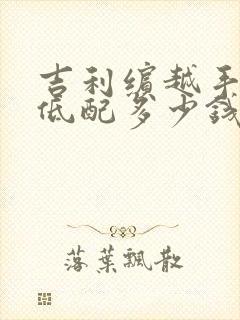 吉利缤越手
低配多少钱
落葉飄散